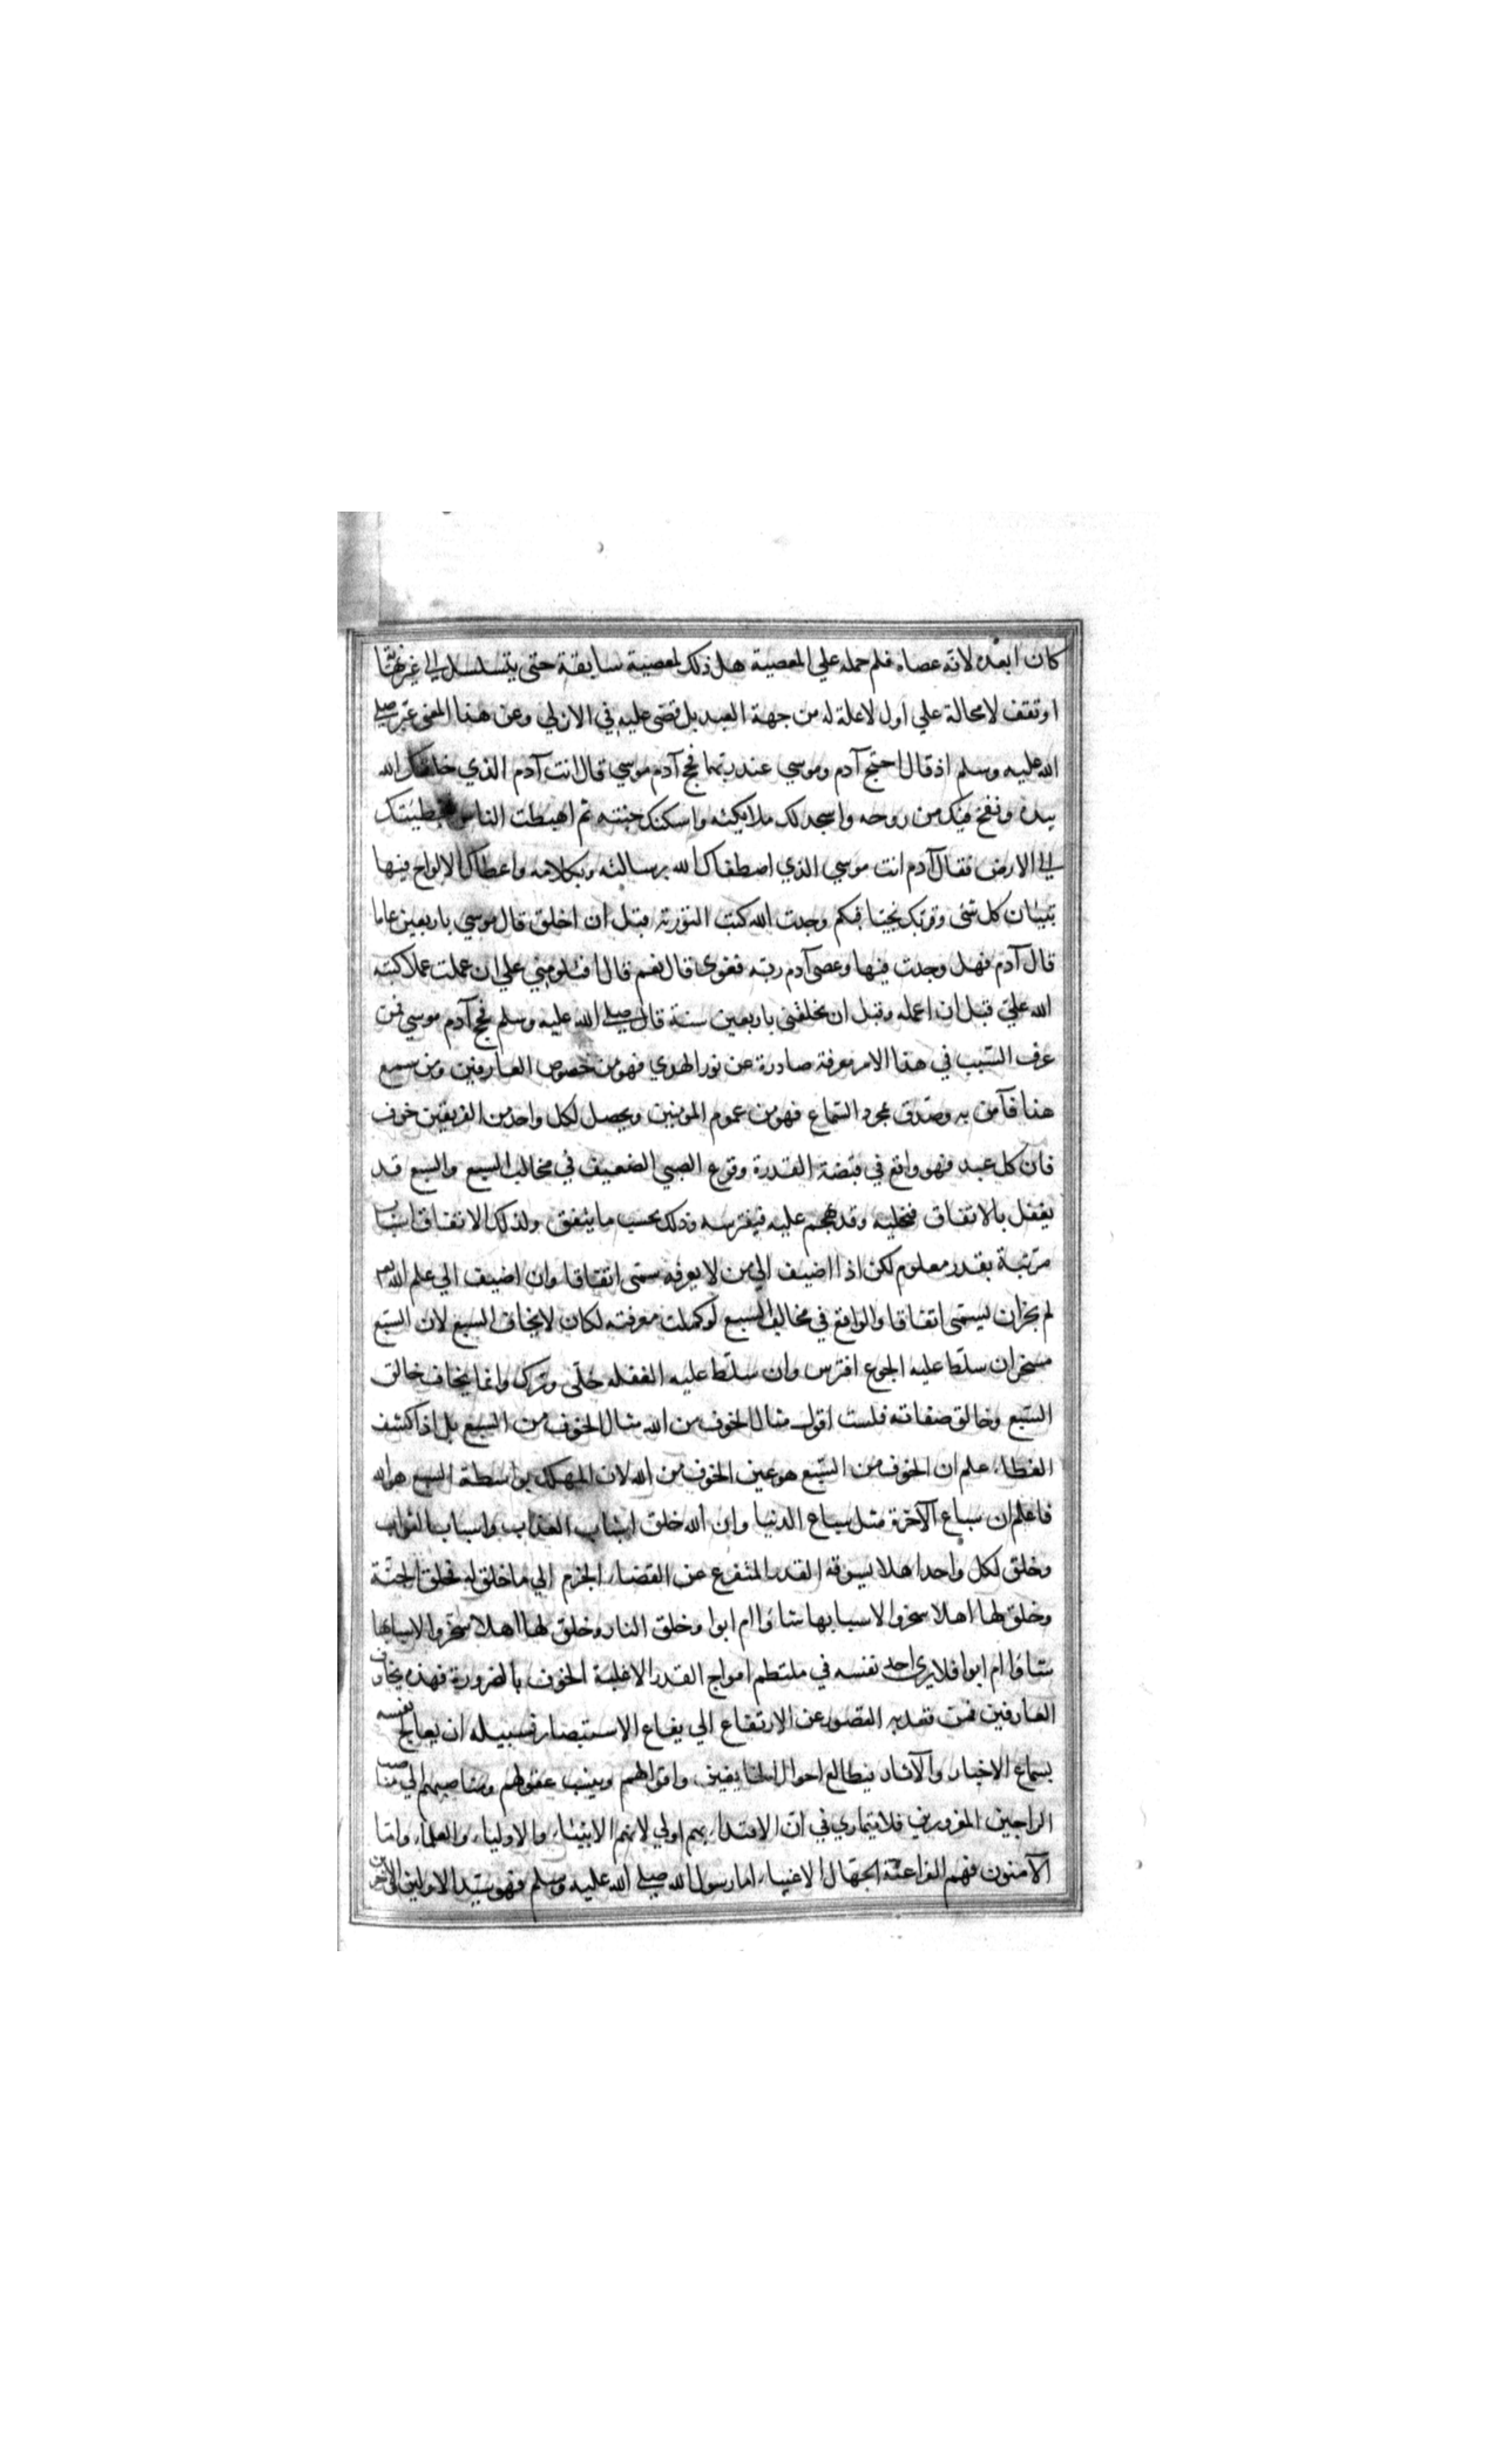 كان ابعده لانه عصاه فلم حمله علي المعصية هل ذلك لمعصية سابقة حتى يتسلسل الي غير نهاية
او تقف لا محالة علي اول لا علة له من جهة العبد بل قضى عليه في الازلي وعن هذا المعنى عبر صلي
الله عليه وسلم اذ قال احتج آدم وموسي عند ربهما فحج آدم موسي قال انت آدم الذي خلقك الله
بيده ونفخ فيك من روحه واسجد لك ملايكته واسكنك جنته ثم اهبطت الناس بخطيئتك
الي الارض فقال آدم انت موسي الذي اصطفاك الله برسالته وبكلامه واعطاك الالواح فيها
تبيان كل شئ وقربك نجيا فبكم وجدت الله كتب التورية قبل ان اخلق قال موسي باربعين عاما
قال آدم فهل وجدت فيها وعصى آدم ربه فغوى قال نعم قال افتلومني علي ان عملت عملا كتبه
الله علي قبل ان اعمله وقبل ان يخلقني باربعين سنة قال صلي الله عليه وسلم فحج آدم موسي فمن
عرف السبب في هذا الامر معرفة صادرة عن نور الهدي فهو من خصوص العارفين ومن سمع
هذا فآمن به وصدق بمجرد السماع فهو من عموم المومنين ويحصل لكل واحد من الفريقين خوف
فان كل عبد فهو واقع في قبضة القدرة وقوع الصبي الضعيف في مخالب السبع والسبع قد
يغفل بالاتفاق فيخليه وقد يهجم عليه فيفترسه وذلك بحسب ما يتفق ولذلك الاتفاق اسباب
مرتبة بقدر معلوم لكن اذا اضيف الي من لا يعرفه سمى اتفاقا وان اضيف الي علم الله تع
لم يجز ان يسمى اتفاقا والواقع في مخالب السبع لو كملت معرفته لكان لا يخاف السبع لان السبع
مسخر ان سلط عليه الجوع افترس وان سلط عليه الغفله خلى وترك وانما يخاف خالق
السبع وخالق صفاته فلست اقول مثال الخوف من الله مثال الخوف من السبع بل اذا كشف
الغطاء علم ان الخوف من السبع هو عين الخوف من الله لان المهلك بواسطة السبع هو الله
فاعلم ان سباع الآخرة مثل سباع الدنيا وان الله خلق اسباب العذاب واسباب الثواب
وخلق لكل واحد اهلا يسوقه القدر المتفرع عن القضاء الجزم الي ما خلق له فخلق الجنة
وخلق لها اهلا سخروا لاسبابها شاؤا ام ابوا وخلق النار وخلق لها اهلا سخروا لاسبابها
شاؤا ام ابوا فلا يرى احد نفسه في ملتطم امواج القدر الا غلبه الخوف بالضرورة فهذه مخاوف
العارفين فمن قعد به القصور عن الارتفاع الي يفاع الاستبصار فسبيله ان يعالج نفسه
بسماع الاخبار والآثار فيطالع احوال الخايفين واقوالهم وينسب عقولهم ومناصبهم الي مناصب
الراجين المغرورين فلا يتماري في ان الاقتداء بهم اولي لانهم الانبياء والاولياء والعلماء واما
الآمنون فهم الفراعنة الجهال الاغبياء اما رسول الله صلي الله عليه وسلم فهو سيد الاولين والآخرين